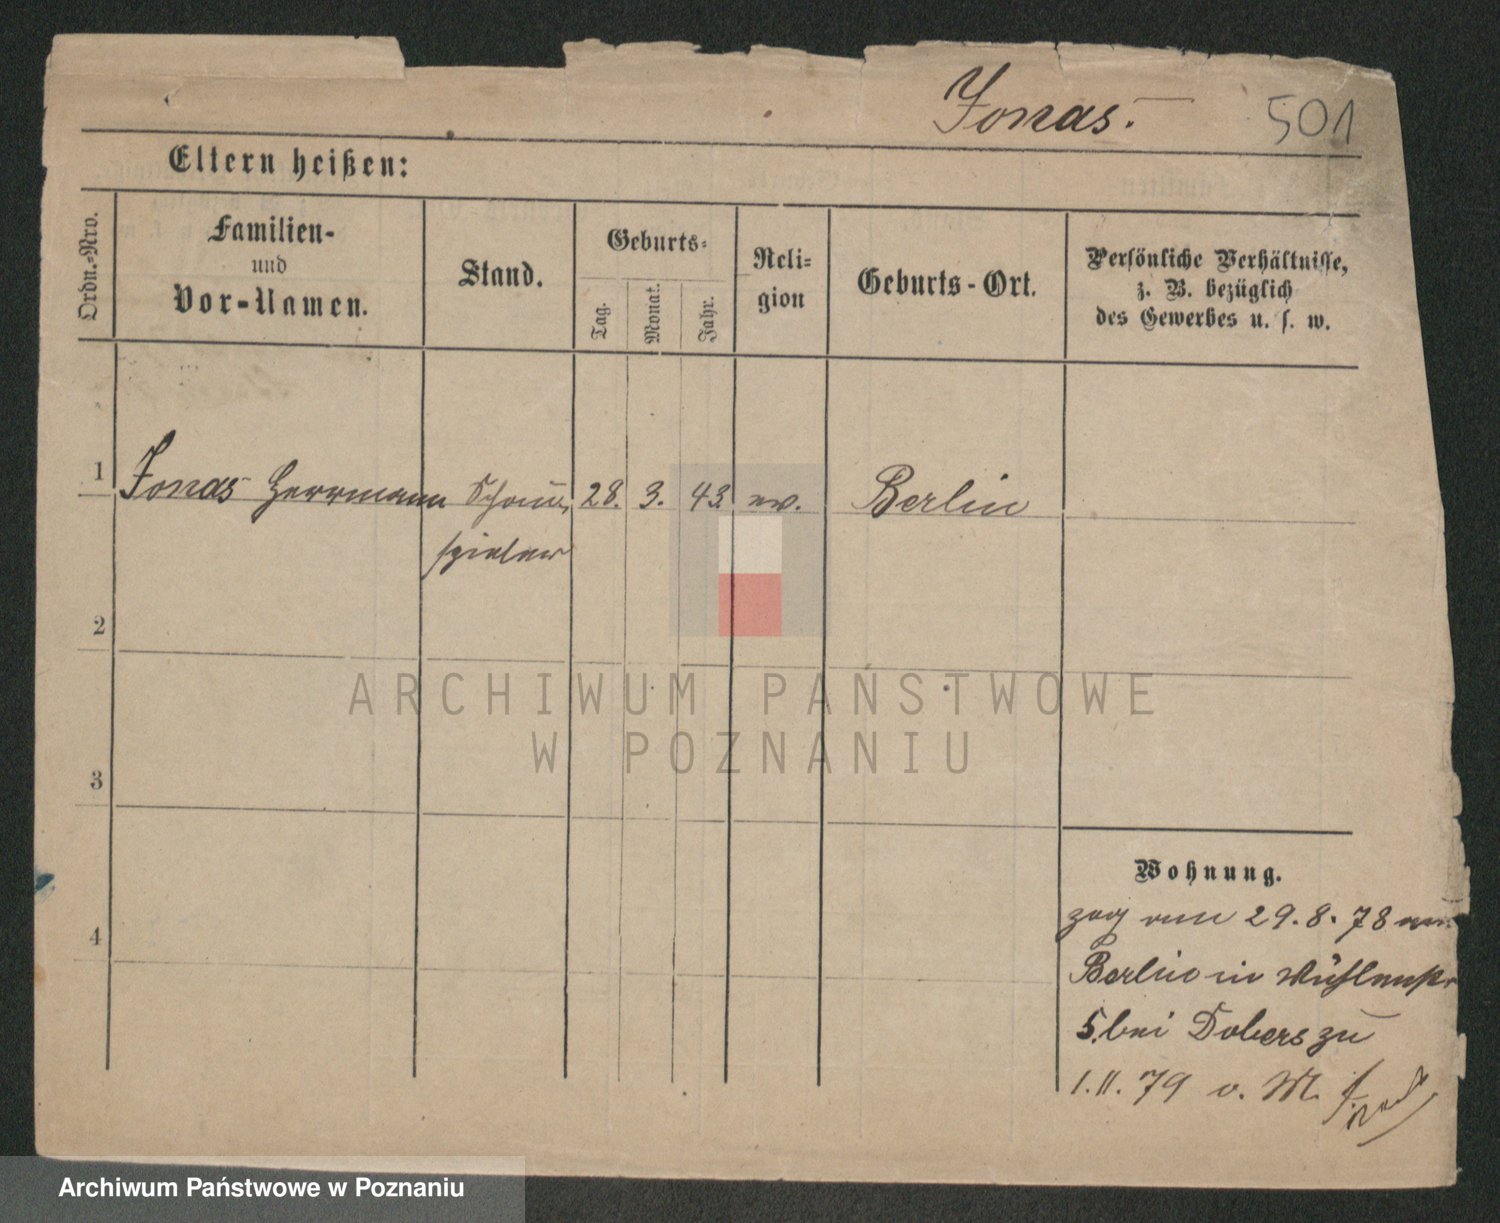 Jonas.
501
Eltern heißen:
Ordn.-Nro.
Familien-
und
Vor-Namen.
Stand.
Geburts-
Tag.
Monat.
Jahr.
Reli-
gion
Geburts-Ort.
Persönliche Verhältnisse,
z. B. bezüglich
des Gewerbes u. s. w.
1 Jonas Herrmann Schau- 28. 3. 43 ev. Berlin
spieler
2
ARCHIWUM PAŃSTWOWE
W POZNANIU
3
Wohnung.
4
zog am 29.8.78 von
Berlin in Mühlenstr
5. bei Dobers zu
1.11.79 v. M.
Archiwum Państwowe w Poznaniu